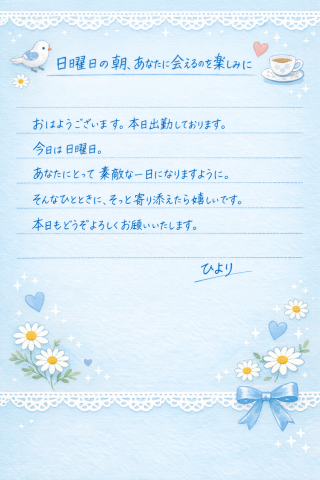 日曜日の朝、あなたに会えるのを楽しみに
おはようございます。本日出勤しております。
今日は日曜日。
あなたにとって素敵な一日になりますように。
そんなひとときに、そっと寄り添えたら嬉しいです。
本日もどうぞよろしくお願いいたします。
ひより